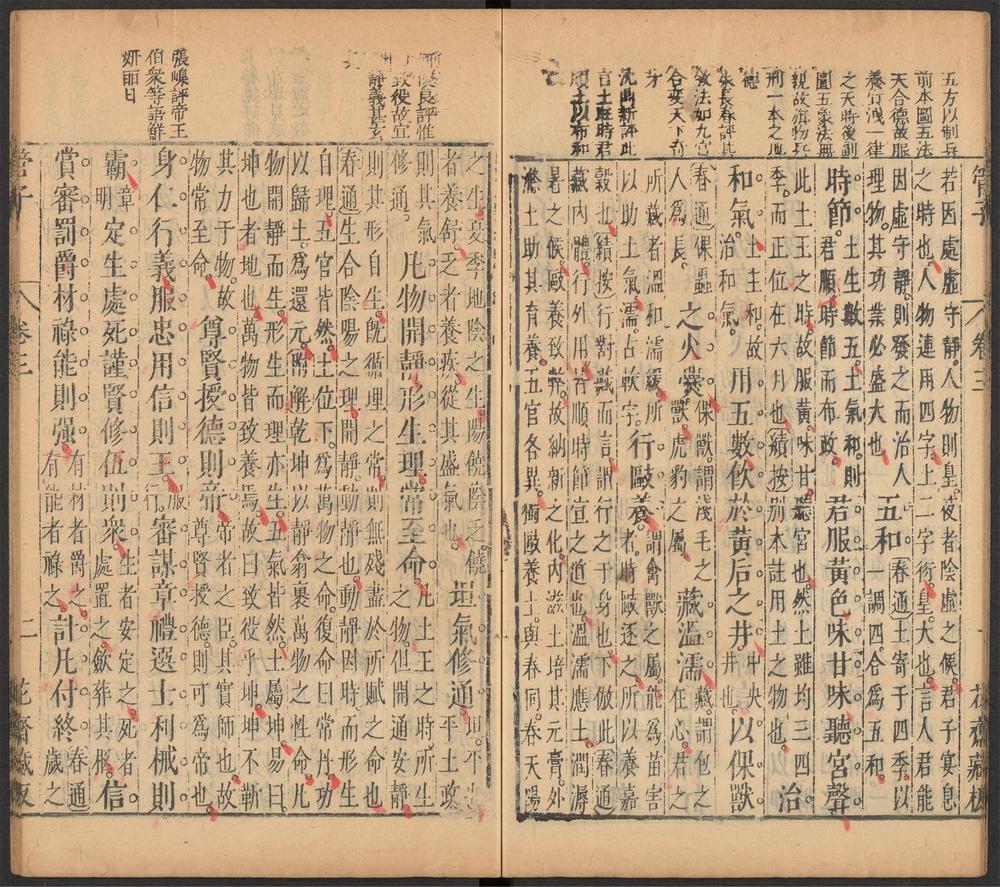 五方以制兵
前本圖五法
天合德故服
之天時後創
親故旗物兵
刑一本之地
德
朱長春評其
發法如九宮
合变天下奇
牙
沈鼎新評此
言土旺時君
順土以布和
管子 卷三 花齋藏板
若因處虛守靜人物則皇夜者陰虛之候君子宴息
之時也人人物連用四字上二字衍皇大也言人君能
因虛守靜則發之而治人
理物其功業必盛大也
五和
春通土寄于四季以
一調四合爲五和
時節
土生數五土氣和則
君順時節而布政
君服黃色味甘味聽宮聲
此土王之時故服黃味甘聽宮也然土雖均三四
季而正位在六月也績按別本註用土之物也
治
和氣
土主和故
治和氣
用五數飲於黃后之井
中央
井也
以倮獸
春通倮蟲
人爲長
之火爨
倮獸謂淺毛之
獸虎豹之屬
藏溫濡
藏謂包之
在心君之
所藏者溫和濡緩所
以助土氣濡占軟字
行敺養
謂禽獸之屬能爲苗害
者時敺逐之所以養嘉
穀也績按行對藏而言謂行之于身也下倣此春通
藏內體行外用皆順時節宣之道也溫濡應土潤溽
暑之候敺養致幹故納新之化內滋土培其元膏外
修土助其育養五官各異獨敺養土與春同春天陽
之生夏季地陰之生陽饒陰乏饒
者養舒乏者養疾從其盛氣也
坦氣修通
坦平也
平土政
則其氣
修通
凡物開靜形生理常至命
凡土王之時所生
之物但開通安靜
則其形自生旣循理之常則無殘盡於所賦之性命也
春通生合陰陽之理開靜動靜也動靜因時而形生
自理五官皆然土位下爲萬物之命復命曰常丹功
以歸土爲還元陽解乾坤以靜翕裹萬物之性命凡
物開靜而生形生而理亦生五氣皆然土屬坤易曰
坤也者地也萬物皆致養焉故曰致役乎坤坤不靳
其力于物故
物常至命
尊賢授德則帝
帝者之臣其實師也故
尊賢授德則可爲帝也
身仁行義服忠用信則王
服
行
審謀章禮選士利械則
霸
章
明
定生處死謹賢修伍則衆
生者安定之死者
處置之斂葬其胔
信
賞審罰爵材祿能則强
有材者爵之
有能者祿之
計凡付終
春通
歲之
管子 卷三 二 花齋藏板
張嵲評帝王
伯衆等語鮮
妍丽日